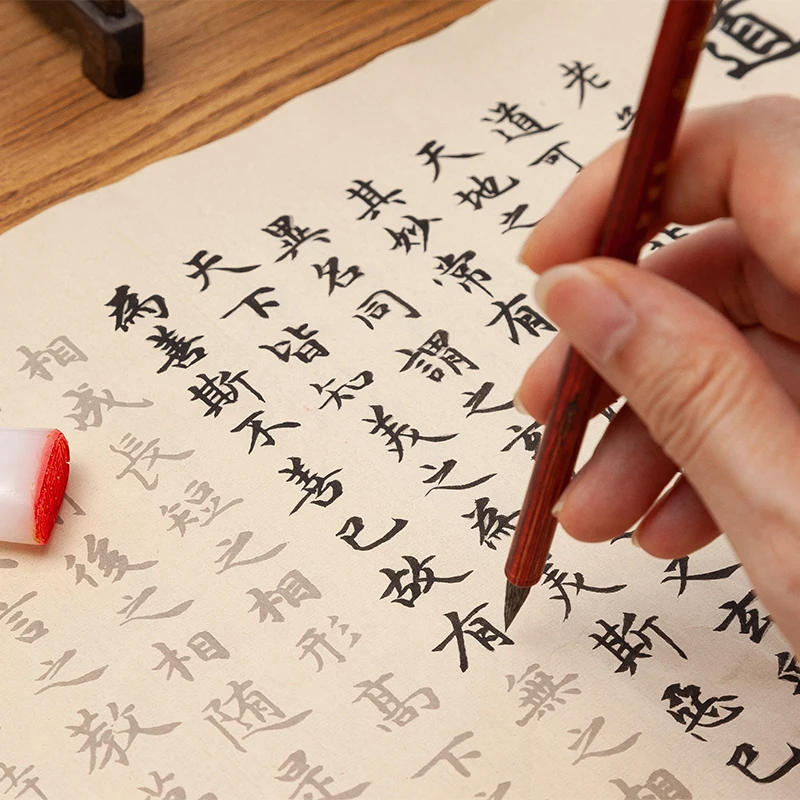 道
老
道可
天地之
其妙常有
異名同謂之玄又玄
天下皆知美之為美斯惡已
為善斯不善已故有無之相
相成長短之相形高下
後之相随是
言之教